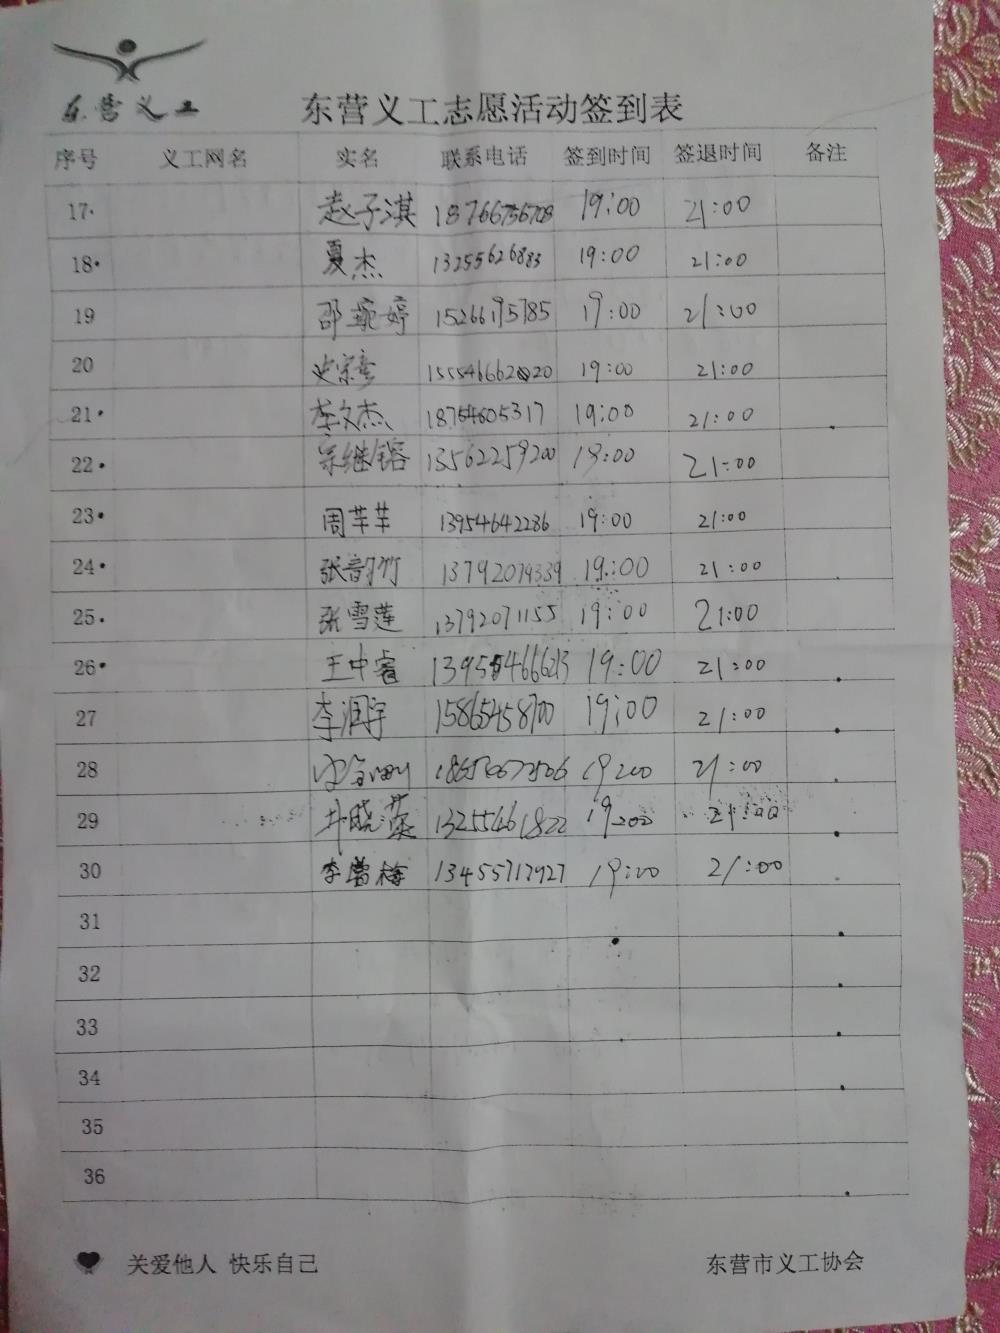 东营义工
东营义工志愿活动签到表
序号 义工网名 实名 联系电话 签到时间 签退时间 备注
17. 赵子淇 18766736708 19:00 21:00
18. 夏杰 13255626883 19:00 21:00
19 邵琬婷 15266195785 19:00 21:00
20 史宗奎 19:00 21:00
21. 李文杰 18754605317 19:00 21:00
22. 宗继镕 13562259200 19:00 21:00
23. 周芊芊 13954642286 19:00 21:00
24. 张韵竹 13792079339 19:00 21:00
25. 张雪莲 13792071155 19:00 21:00
26. 王中睿 19:00 21:00
27 李润宇 15865458700 19:00 21:00
28 19:00 21:00
29 井晓蕊 13255461822 19:00 21:00
30 李曾梅 13455717927 19:00 21:00
31
32
33
34
35
36
关爱他人 快乐自己 东营市义工协会